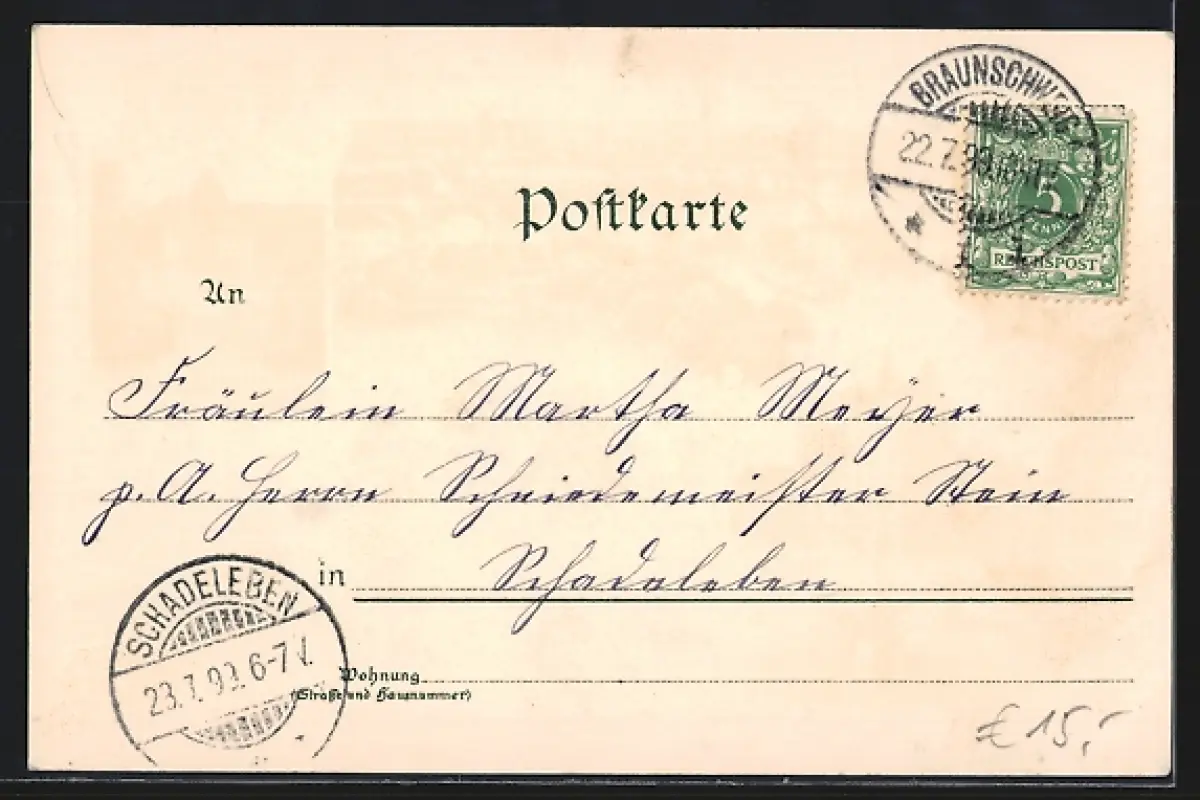 BRAUNSCHWEIG
22.7.99.
5
PFENNIG
REICHSPOST
Postkarte
An
Fräulein Martha Meyer
p. A. Herrn Schmiedemeister Stein
in Schadeleben
SCHADELEBEN
23.7.99. 6-7V.
Wohnung
(Straße und Hausnummer)
€ 15,-